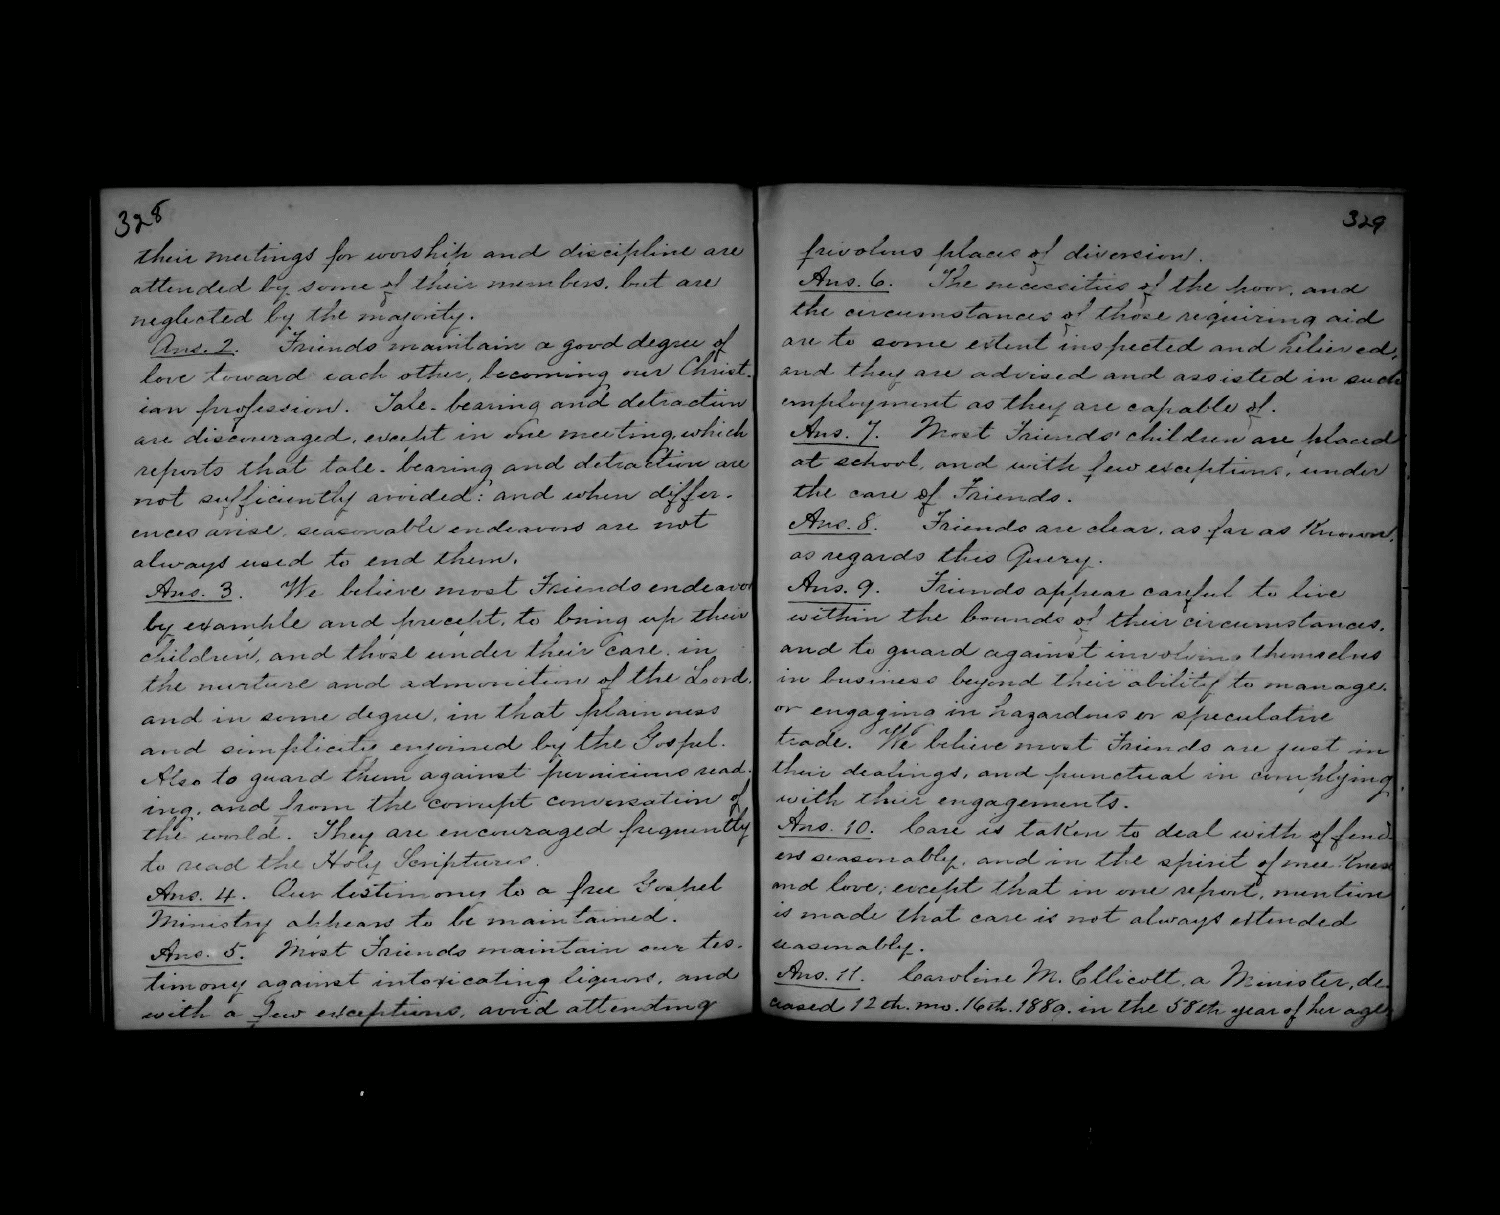 328
their meetings for worship and discipline are
attended by some of their members, but are
neglected by the majority.
Ans. 2. Friends maintain a good degree of
love toward each other, becoming our Christ-
ian profession. Tale-bearing and detraction
are discouraged, except in one meeting, which
reports that tale-bearing and detraction are
not sufficiently avoided: and when differ-
ences arise, seasonable endeavors are not
always used to end them.
Ans. 3. We believe most Friends endeavor
by example and precept, to bring up their
children, and those under their care, in
the nurture and admonition of the Lord,
and in some degree, in that plainness
and simplicity enjoined by the Gospel.
Also to guard them against pernicious read-
ing, and from the corrupt conversation of
the world. They are encouraged frequently
to read the Holy Scriptures.
Ans. 4. Our testimony to a free Gospel
Ministry appears to be maintained.
Ans. 5. Most Friends maintain our tes-
timony against intoxicating liquors, and
with a few exceptions, avoid attending
329
frivolous places of diversion.
Ans. 6. The necessities of the poor, and
the circumstances of those requiring aid
are to some extent inspected and relieved,
and they are advised and assisted in such
employment as they are capable of.
Ans. 7. Most Friends' children are placed
at school, and with few exceptions, under
the care of Friends.
Ans. 8. Friends are clear, as far as Known,
as regards this Query.
Ans. 9. Friends appear careful to live
within the bounds of their circumstances,
and to guard against involving themselves
in business beyond their ability to manage,
or engaging in hazardous or speculative
trade. We believe most Friends are just in
their dealings, and punctual in complying
with their engagements.
Ans. 10. Care is taken to deal with offend-
ers seasonably, and in the spirit of meekness
and love; except that in one report, mention
is made that care is not always extended
seasonably.
Ans. 11. Caroline M. Ellicott, a Minister, de-
ceased 12th. mo. 16th. 1880. in the 58th year of her age